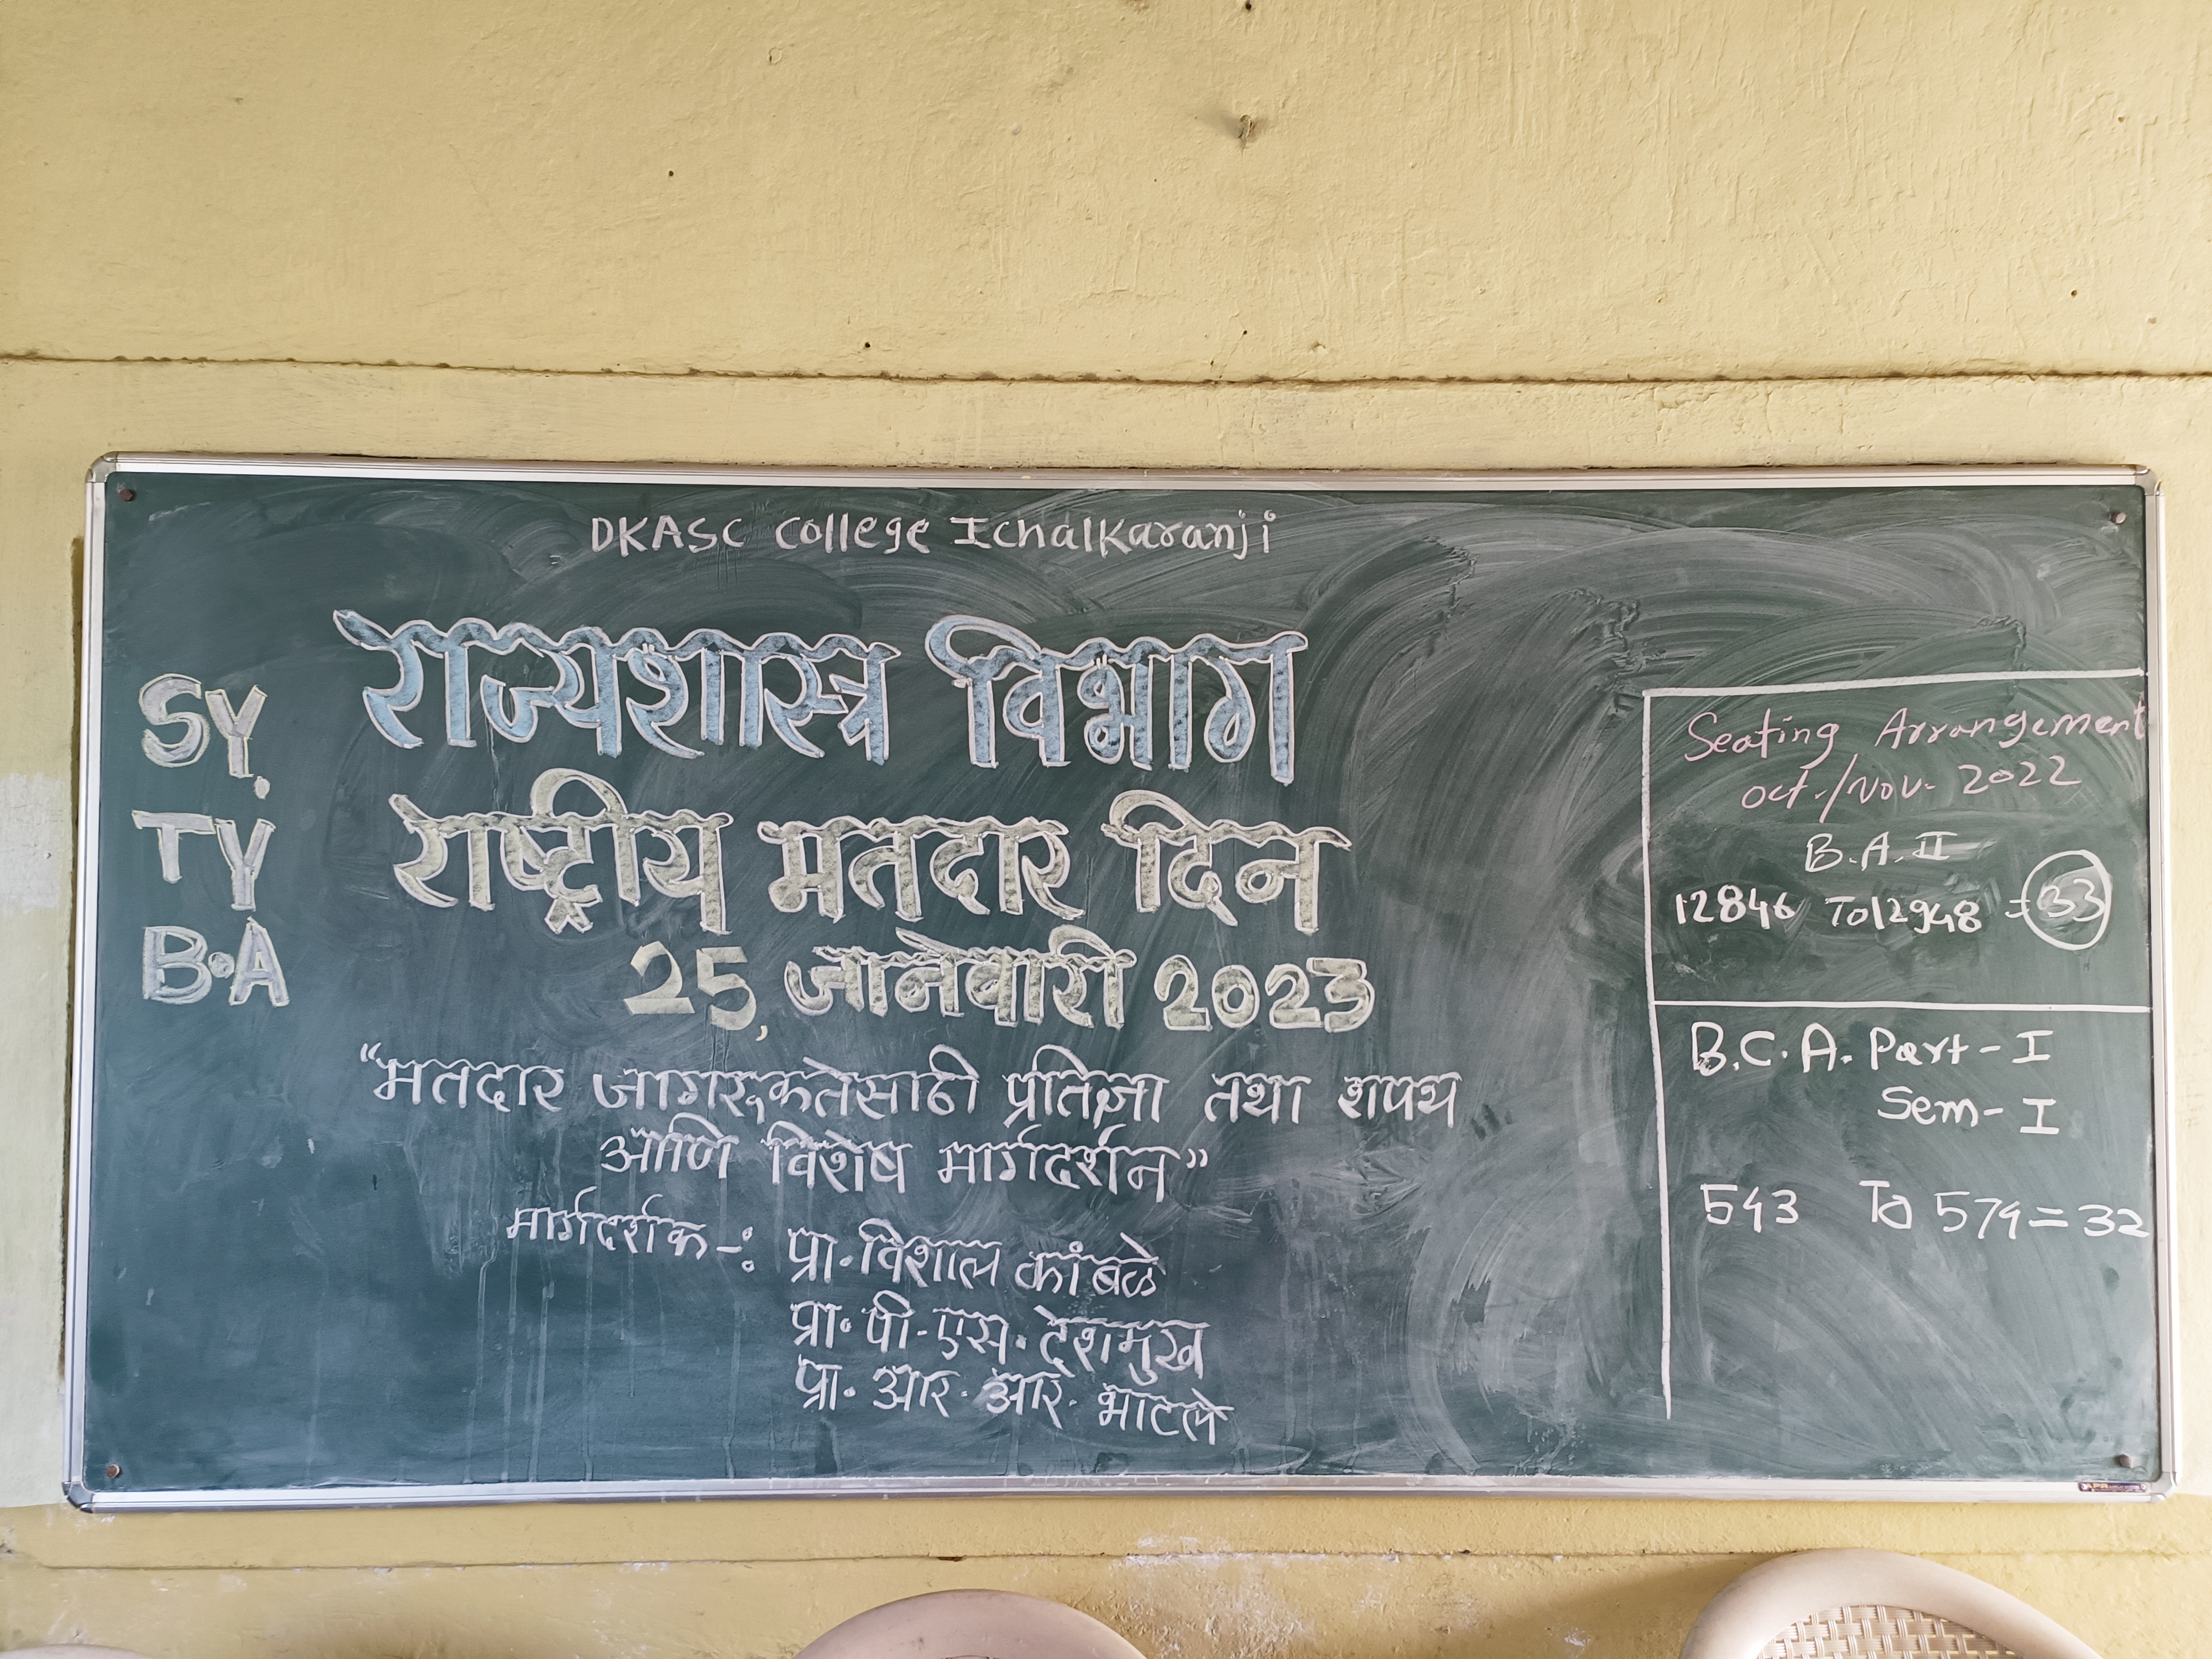 DKASC College Ichalkaranji
राज्यशास्त्र विभाग
राष्ट्रीय मतदार दिन
25, जानेवारी 2023
"मतदार जागरुकतेसाठी प्रतिज्ञा तथा शपथ
आणि विशेष मार्गदर्शन"
मार्गदर्शक -: प्रा. विशाल कांबळे
प्रा. पी. एस. देशमुख
प्रा. आर. आर. भाटले
SY.
TY
B.A
Seating Arrangement
Oct./Nov. 2022
B.A. II
12846 To 12948 = 33
B.C.A. Part - I
Sem - I
543 To 574 = 32